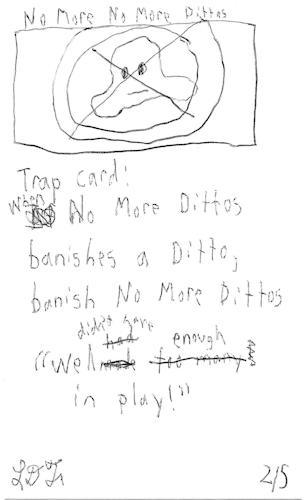 No More No More Dittos
Trap card:
When No More Dittos
banishes a Ditto,
banish No More Dittos
“We didn't have enough
in play!”
2/5